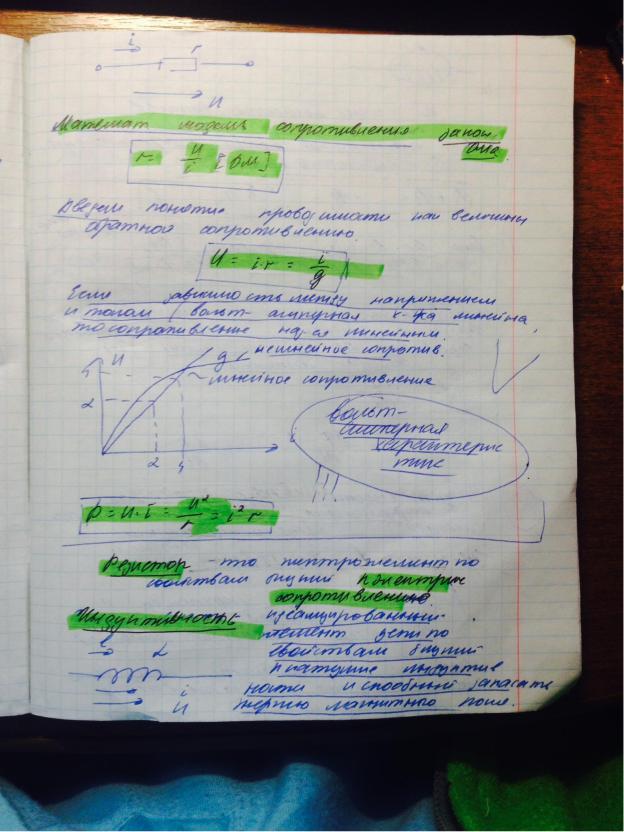 i r
u
Математ модель сопротивления закон
Ома.
r = u/i [Ом]
Введем понятие проводимости как величины
обратной сопротивлению.
U = i·r = i/g
Если зависимость между напряжением
и током (вольт-амперная х-ка линейна,
то сопротивление наз-ся линейным.
U нелинейное сопротив.
линейное сопротивление
2
2 i
вольт-
амперная
характерис
тик
p = u·i = u²/r = i²r
Резистор - это элемент по
свойствам близкий к электрич
сопротивлению
Индуктивность идеализированный
L элемент цепи по
свойствам близкий
к катушке индуктив
i ности и способный запасать
u энергию магнитного поля.